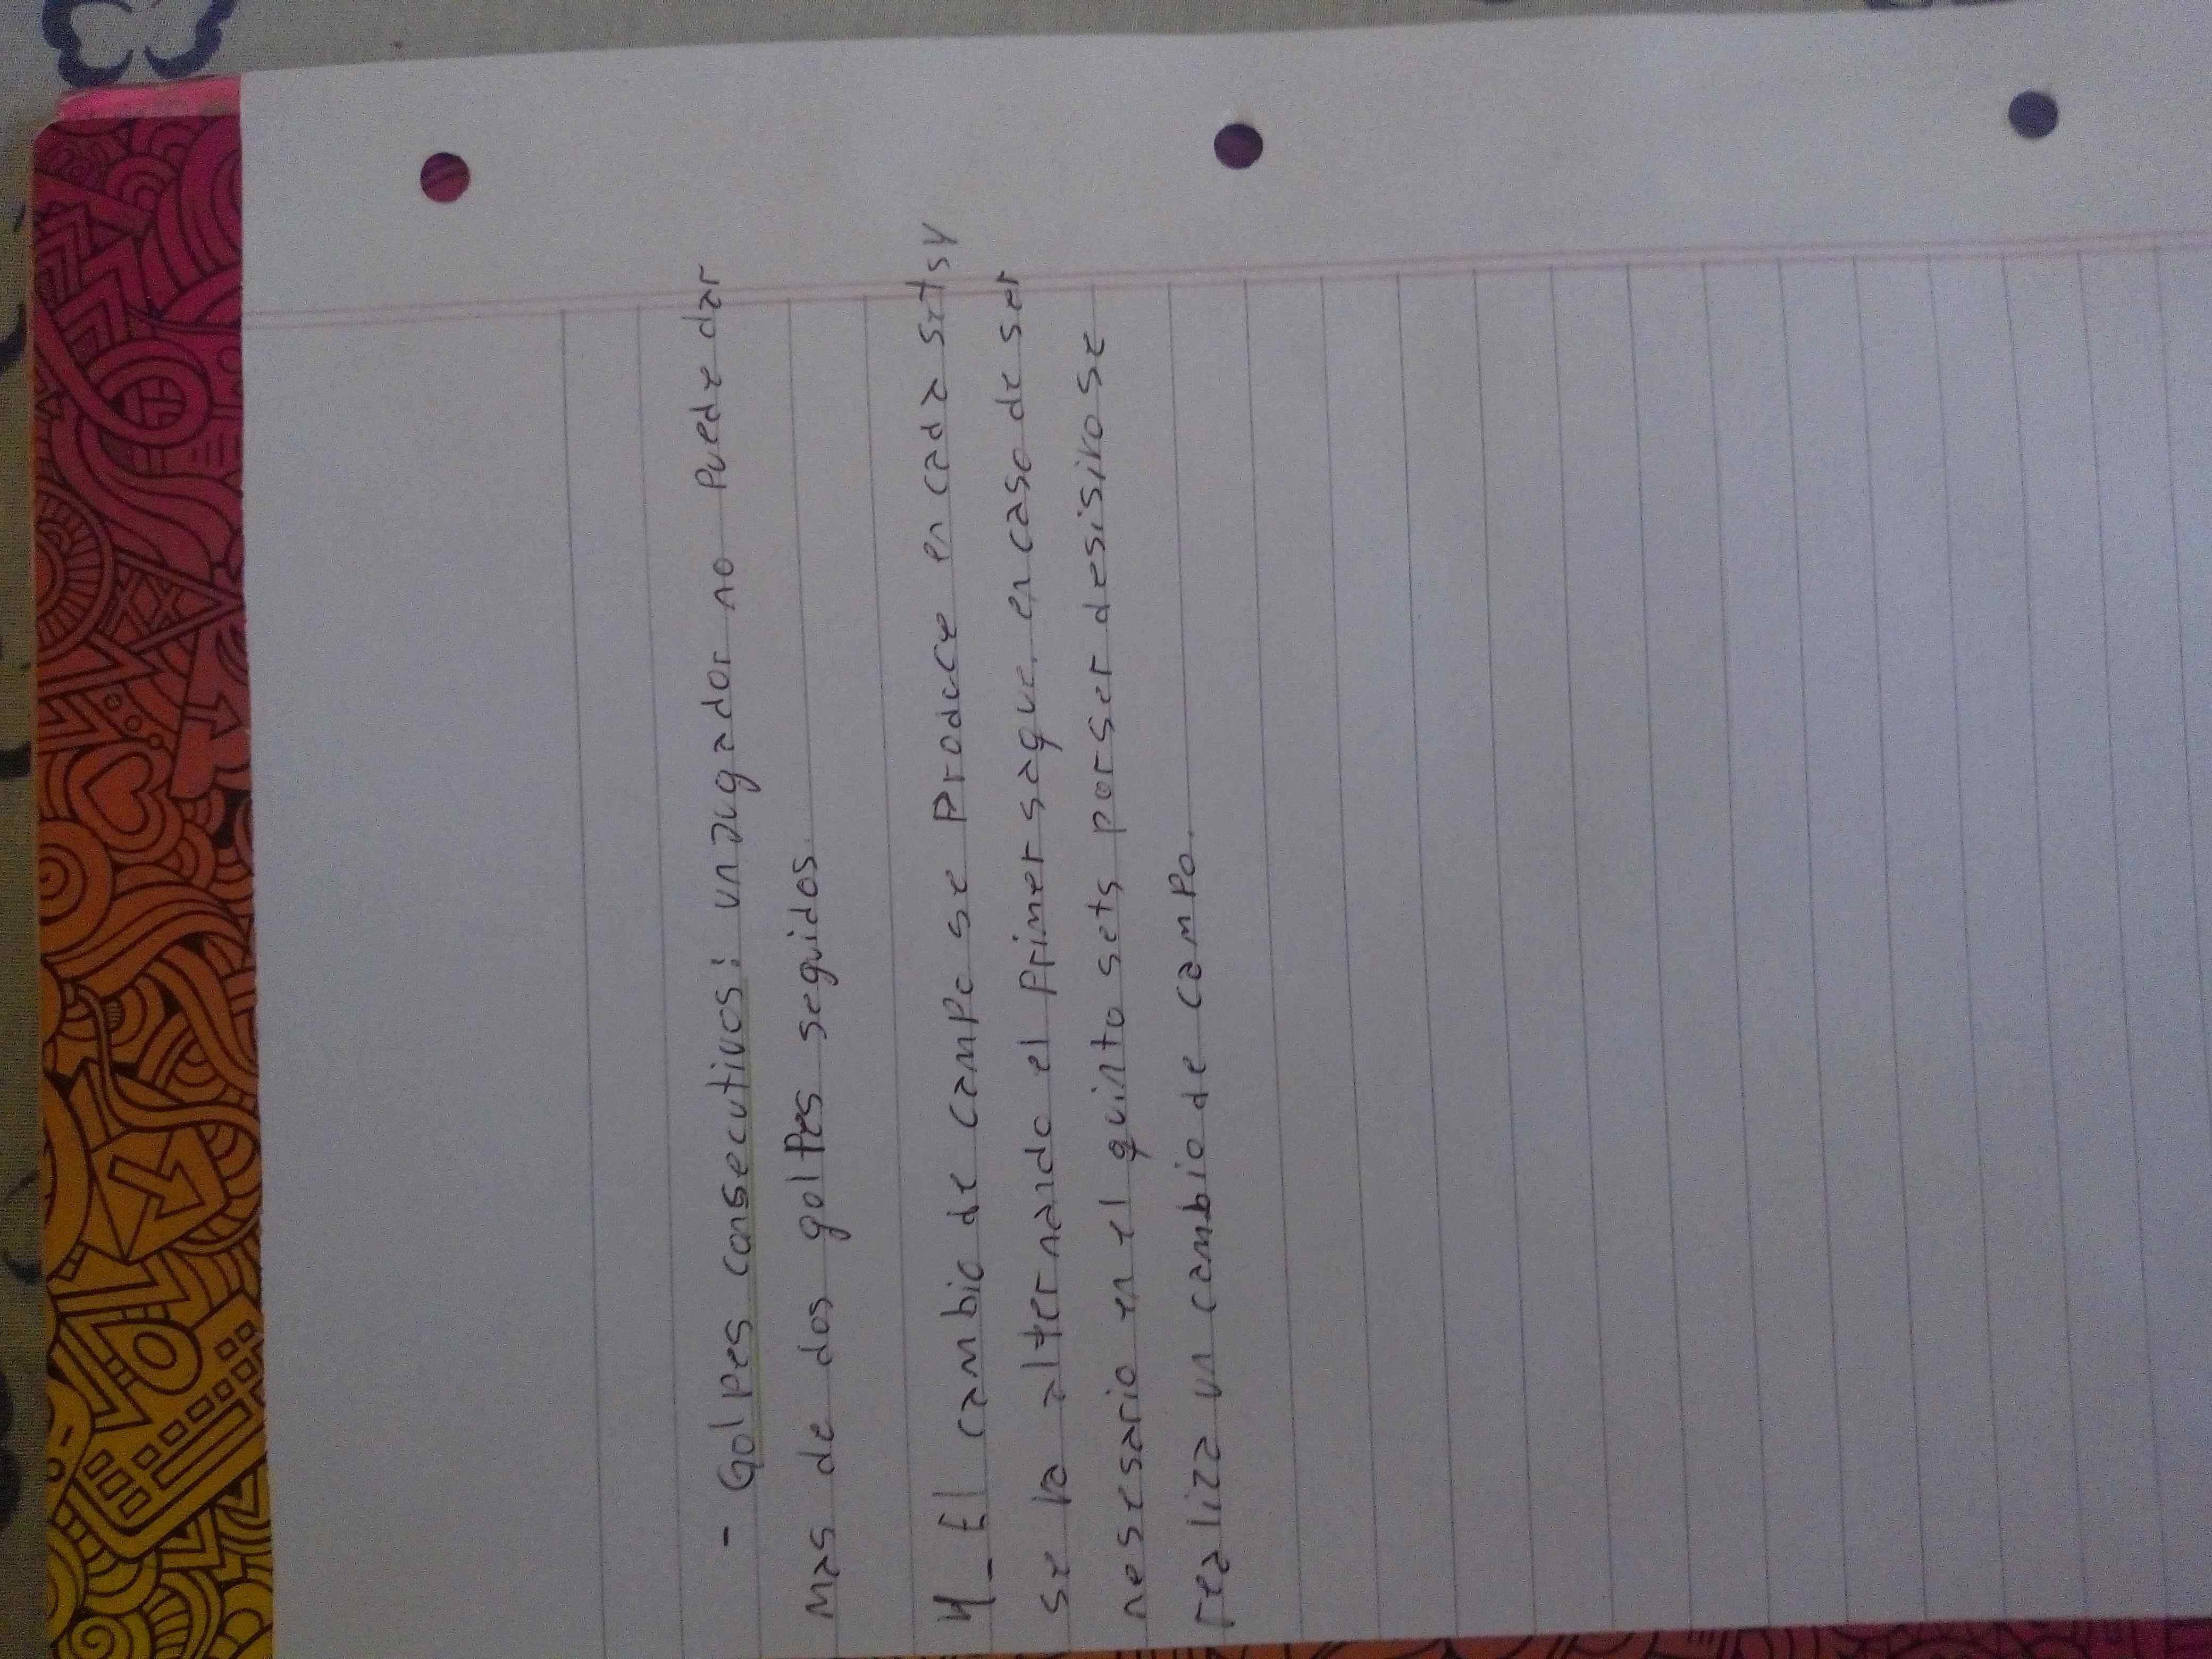 - Golpes consecutivos: un jugador no puede dar
mas de dos golpes seguidos.
4_ El cambio de campo se produce en cada sets y
se va alternando el primer saque, en caso de ser
nesesario en el quinto sets por ser desisivo se
realiza un cambio de campo.